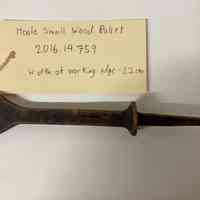 Hoole Small Wood Bullet
2016.14.759
Width of working edge - 2.2cm